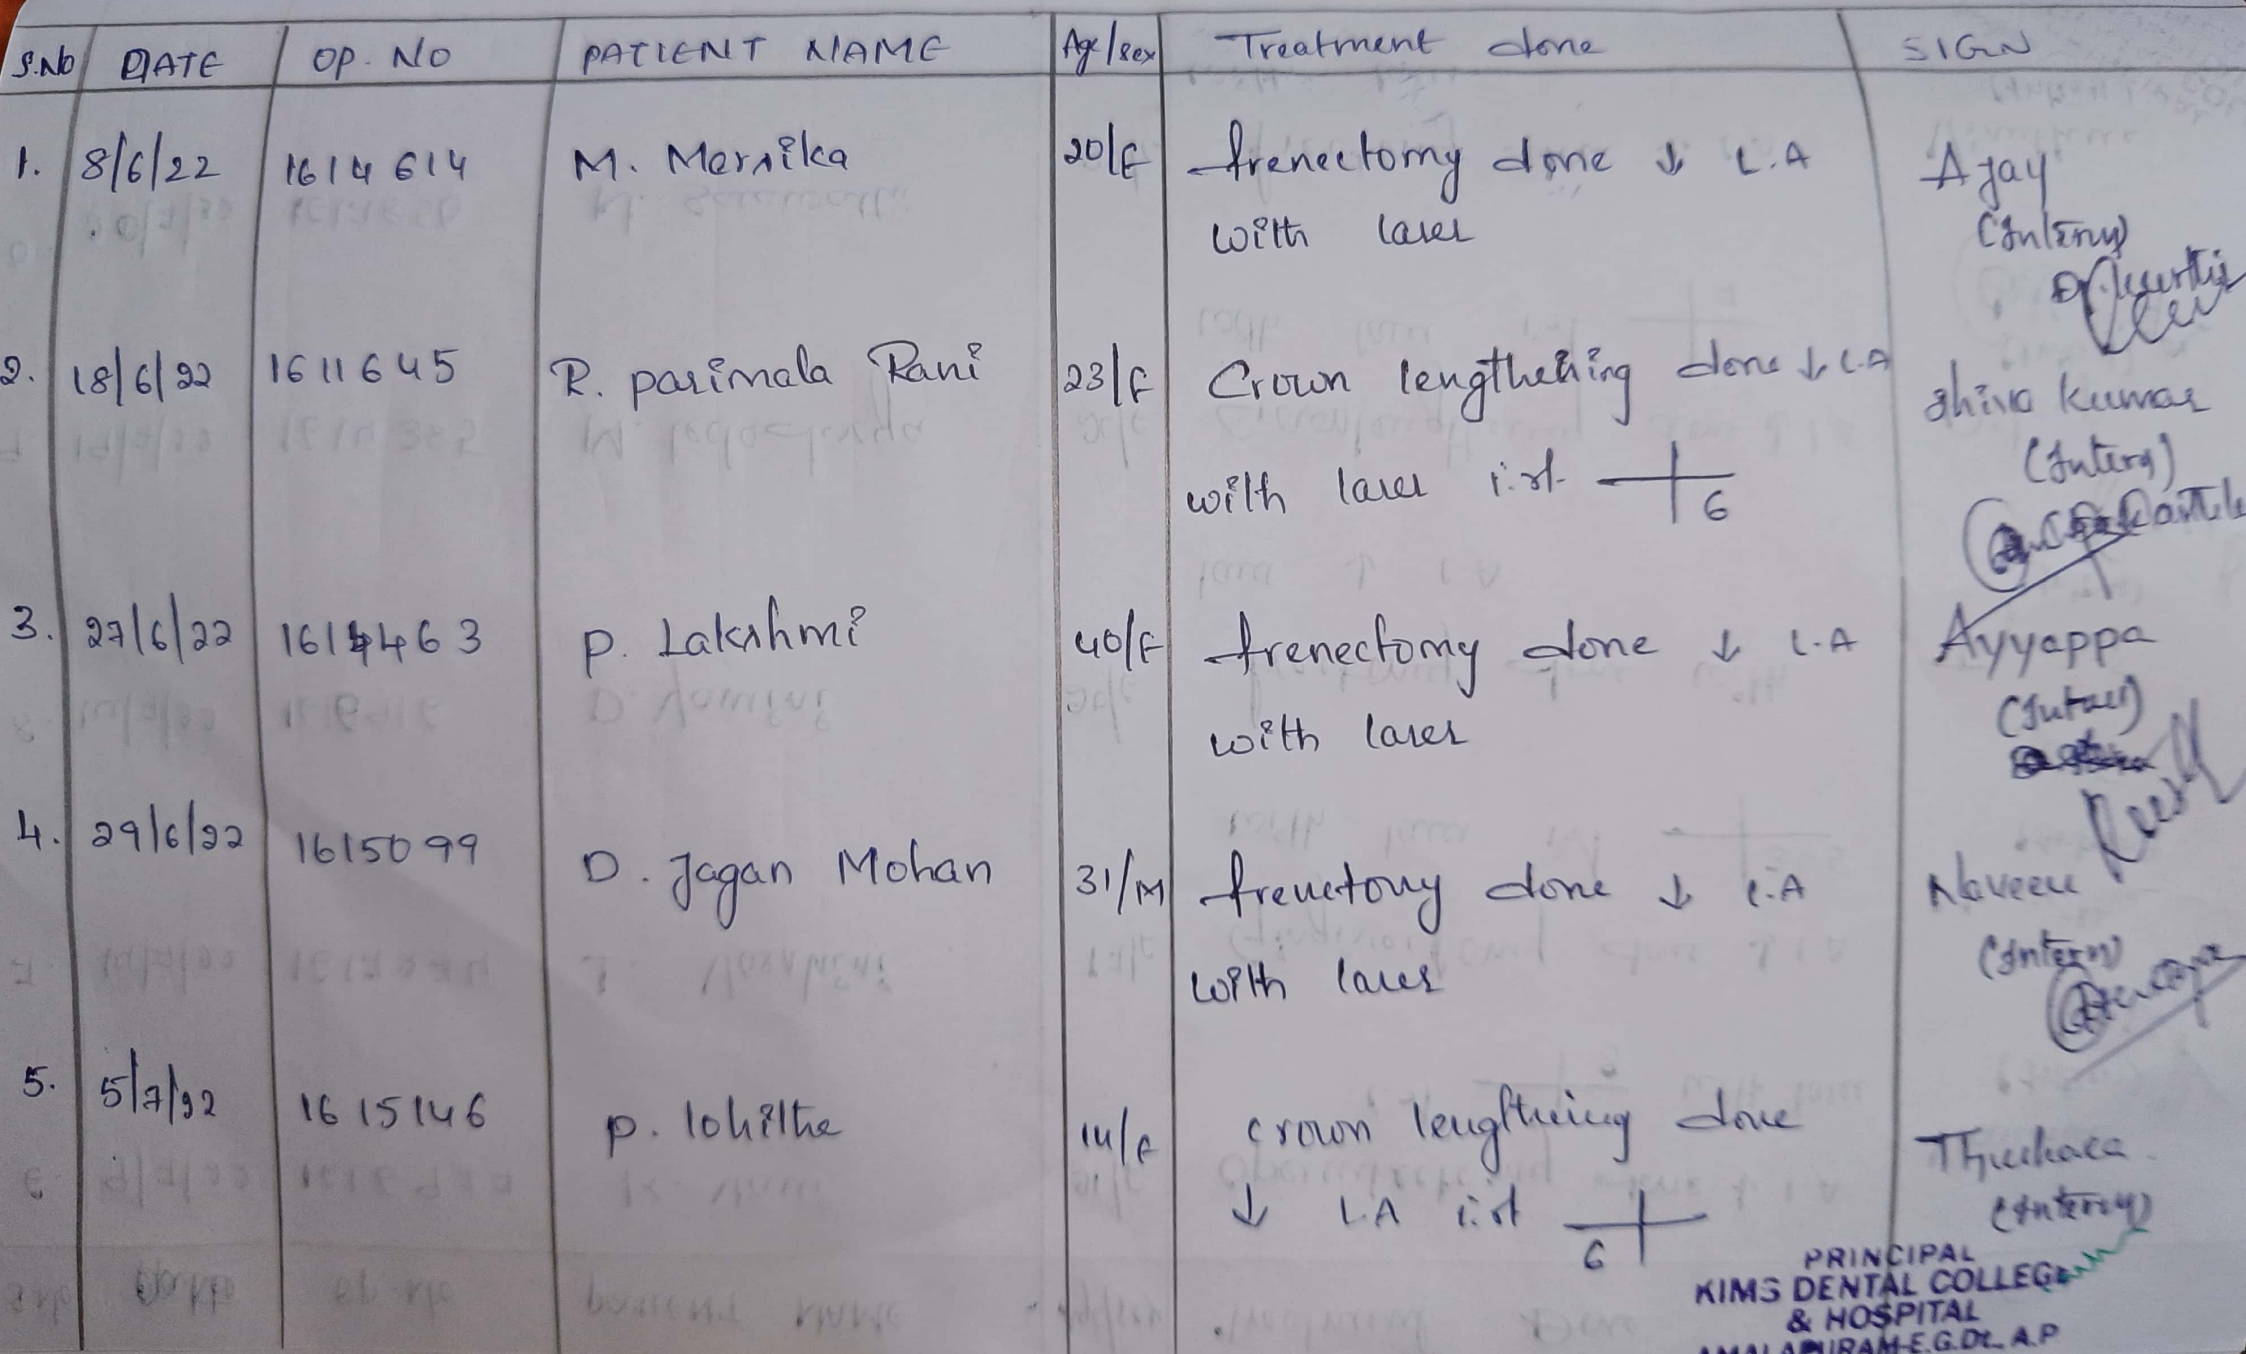 S.No DATE OP. NO PATIENT NAME Age/sex Treatment done SIGN
1. 8/6/22 1614614 M. Mernika 20/F frenectomy done ↓ L.A Ajay
with laser (Intern)
2. 18/6/22 1611645 R. parimala Rani 23/F Crown lengthening done ↓ L.A Shiva kumar
with laser i.r.t 6 (Intern)
3. 27/6/22 1614463 P. Lakshmi 40/F frenectomy done ↓ L.A Ayyappa
with laser (Intern)
4. 29/6/22 1615099 D. Jagan Mohan 31/M frenectomy done ↓ L.A Naveen
with laser (Intern)
5. 5/7/22 1615146 P. lohitha 14/F crown lengthening done
↓ L.A i.r.t 6 (Intern)
PRINCIPAL
KIMS DENTAL COLLEGE
& HOSPITAL
AMALAPURAM-E.G.Dt., A.P